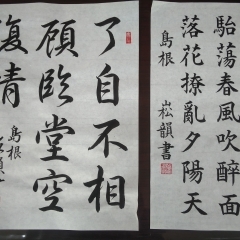 駘蕩春風吹醉面
落花撩亂夕陽天
島根
松韻書
了自不相
顧臨堂空
復情
島根